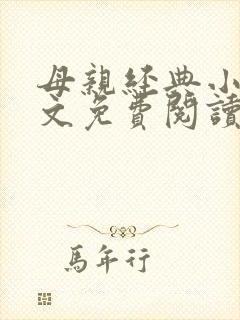 母親经典小
文免費閱讀
馬年行